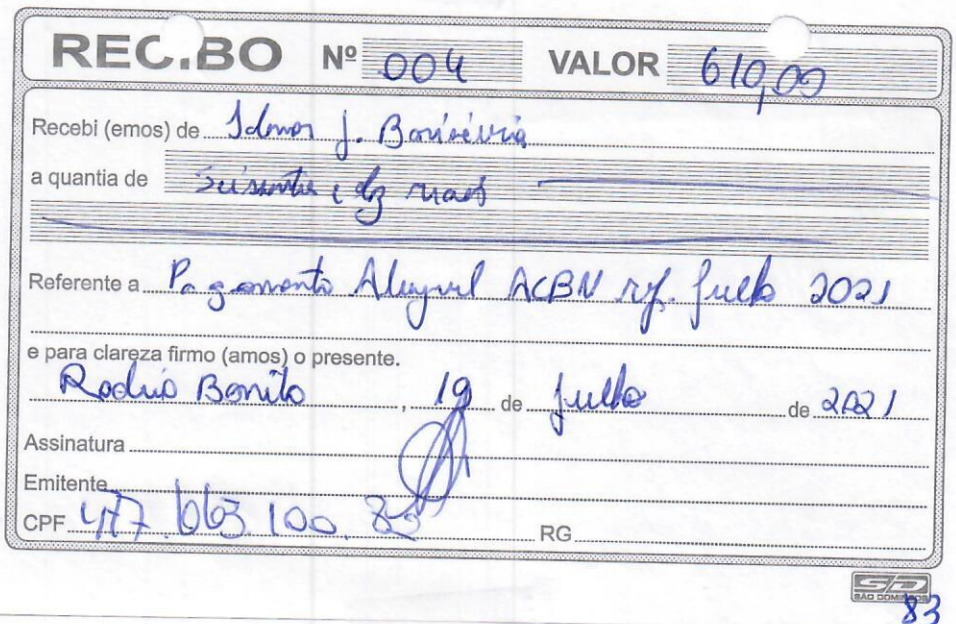 RECIBO Nº 004 VALOR 610,00
Recebi (emos) de J.
a quantia de Seiscentos e dez reais
Referente a Pagamento Aluguel ACBN ref. Julho 2021
e para clareza firmo (amos) o presente.
Bonito, 19 de Julho de 2021
Assinatura
Emitente
CPF 477.663.100. RG
SD
SÃO DOMINGOS
83